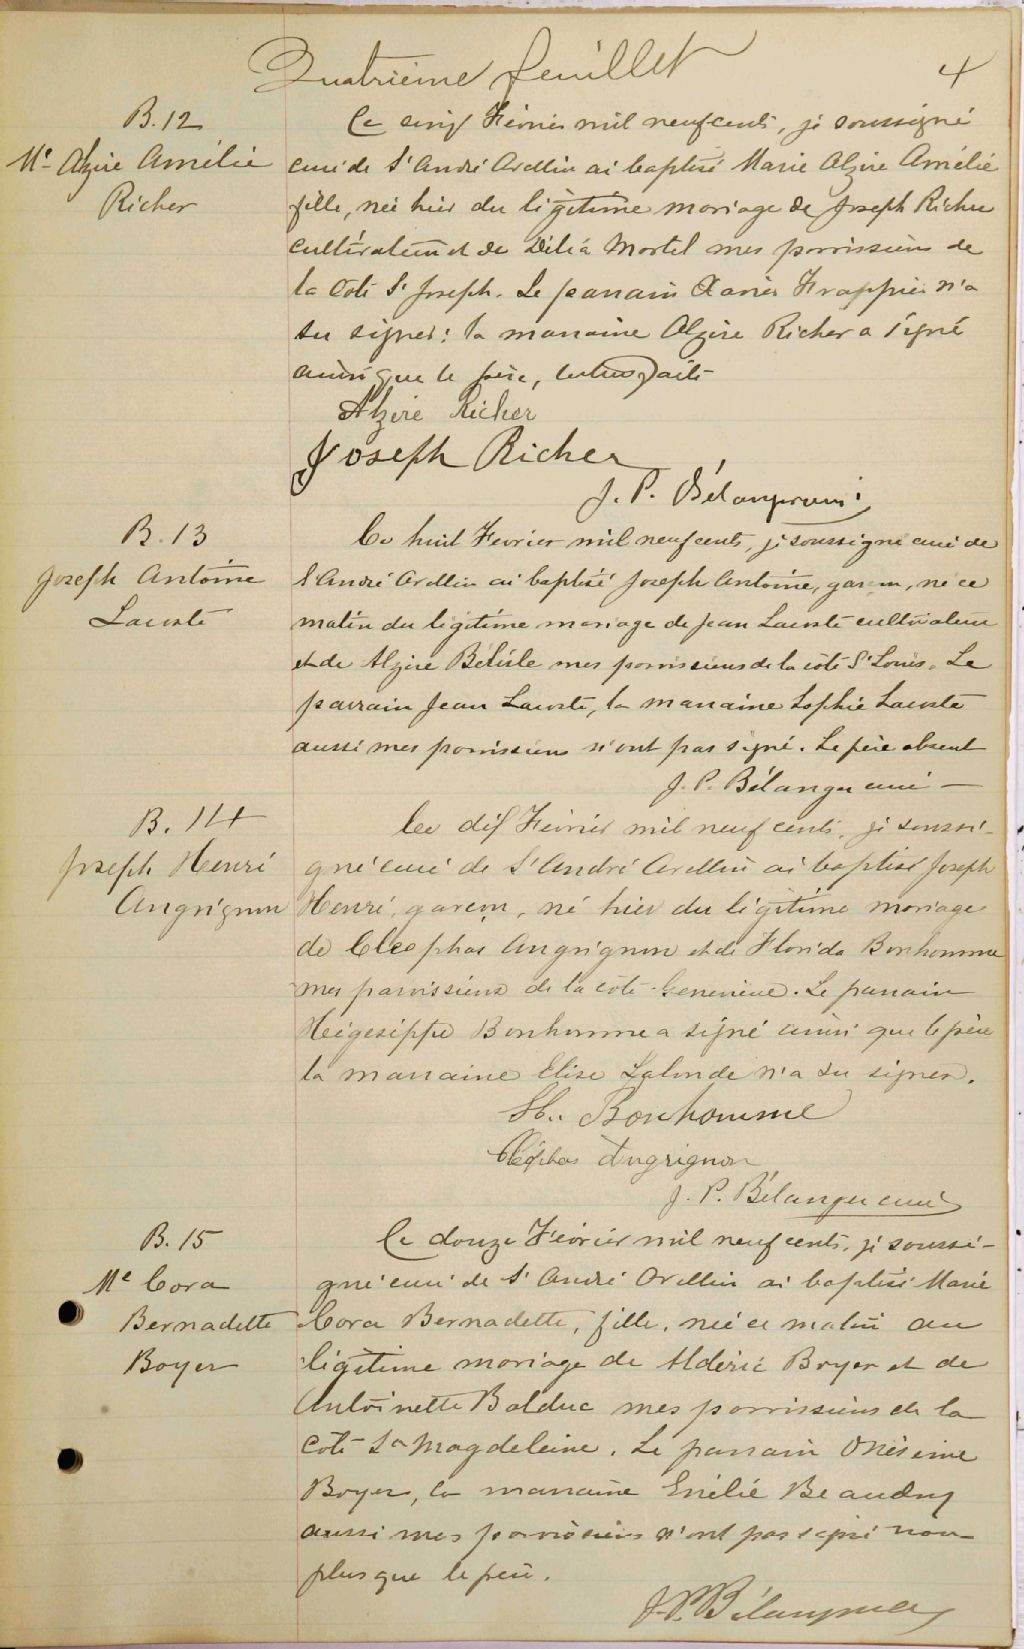 Quatrième feuillet
4
B. 12
Mie Alzire Amélie
Richer
Ce cinq Février mil neuf cents, je soussigné
curé de St André Avellin ai baptisé Marie Alzire Amélie
fille, née hier du légitime mariage de Joseph Richer
cultivateur et de Délia Martel mes paroissiens de
la côte St Joseph. Le parrain Xavier Frappier n'a
su signer: la marraine Alzire Richer a signé
ainsi que le père, lecture faite
Alzire Richer
Joseph Richer
J. P. Bélanger curé
B. 13
Joseph Antoine
Lacoste
Ce huit Fevrier mil neuf cents, je soussigné curé de
St André Avellin ai baptisé Joseph Antoine, garçon, né ce
matin du légitime mariage de Jean Lacoste cultivateur
et de Alzire Bélisle mes paroissiens de la côte St Louis. Le
parrain Jean Lacoste, la marraine Sophie Lacoste
aussi mes paroissiens n'ont pas signé. Le père absent
J. P. Bélanger curé
B. 14
Joseph Henri
Angrignon
Ce dix Février mil neuf cents, je soussi-
gné curé de St André Avellin ai baptisé Joseph
Henri, garçon, né hier du légitime mariage
de Cléophas Angrignon et de Florida Bonhomme
mes paroissiens de la côte Geneviève. Le parrain
Hégesippe Bonhomme a signé ainsi que le père
la marraine Elise Lalonde n'a su signer.
H. Bonhomme
Cléophas Angrignon
J. P. Bélanger curé
B. 15
Me Cora
Bernadette
Boyer
Ce douze Février mil neuf cents, je soussi-
gné curé de St André Avellin ai baptisé Marie
Cora Bernadette, fille, née ce matin du
légitime mariage de Aldéric Boyer et de
Antoinette Balduc mes paroissiens de la
côte Ste Magdeleine. Le parrain Onésime
Boyer, la marraine Enélié Beaudry
aussi mes paroissiens n'ont pas signé non
plus que le père.
J. P. Bélanger